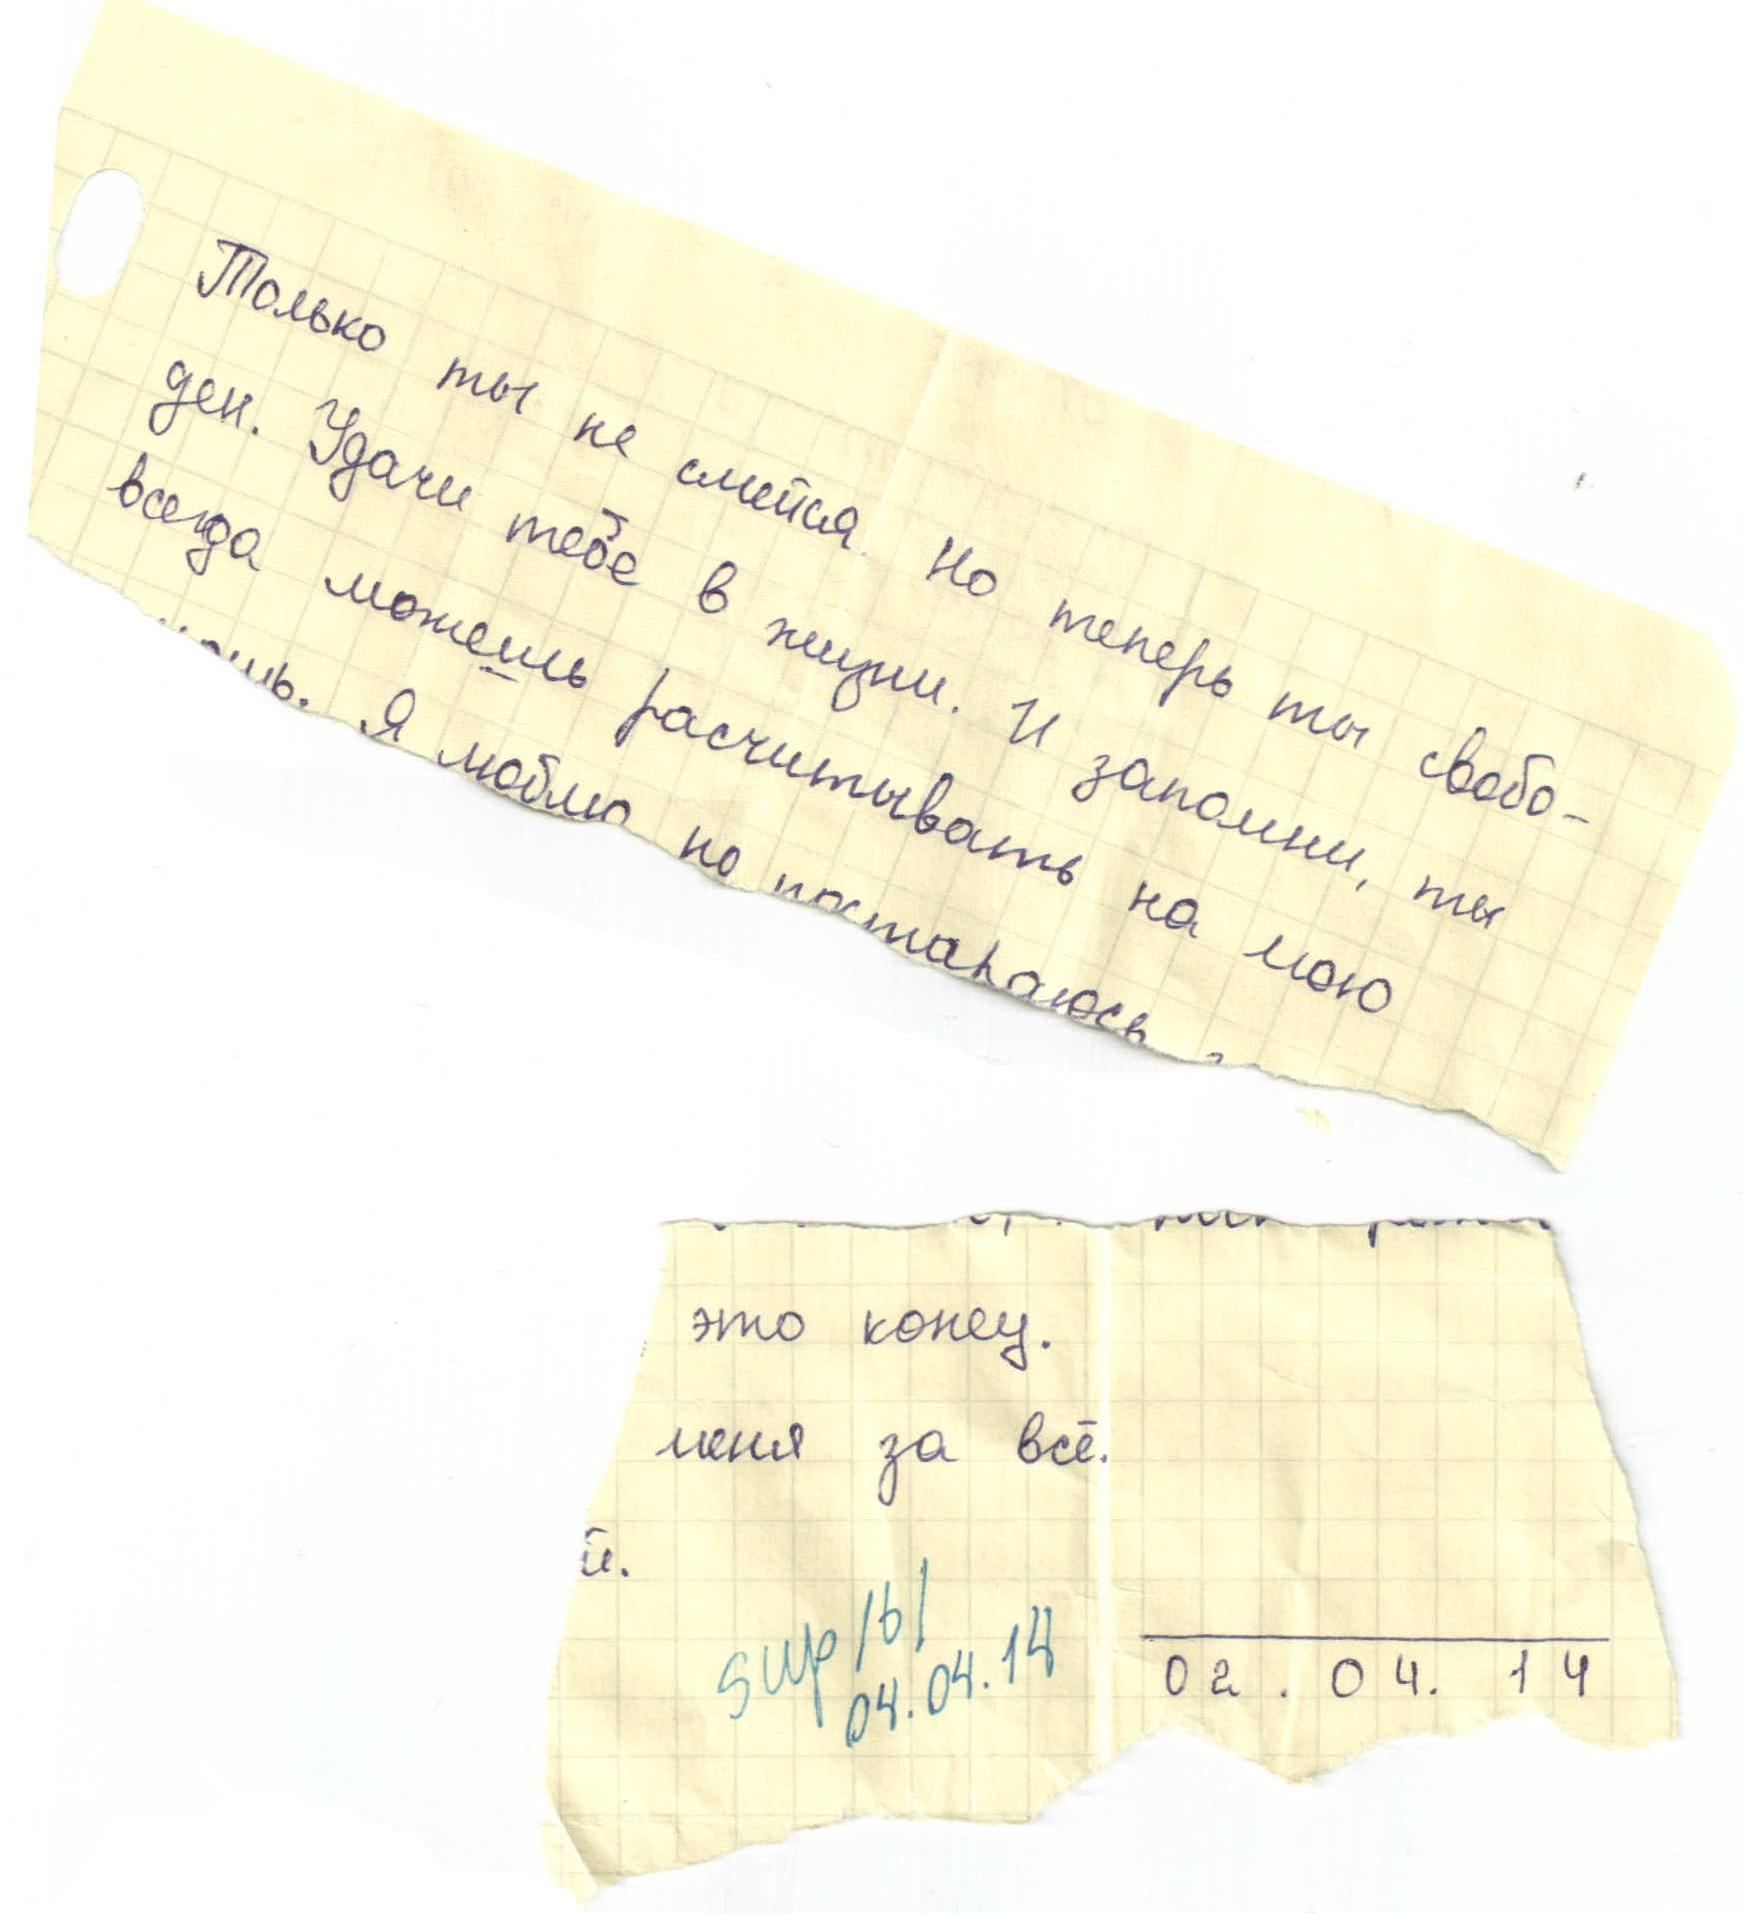 Только ты не смейся. Но теперь ты свобо-
ден. Удачи тебе в жизни. И запомни, ты
всегда можешь расчитывать на мою
Я люблю но постараюсь
это конец.
меня за всё.
й.
sup/b/
04.04.14
02.04.14